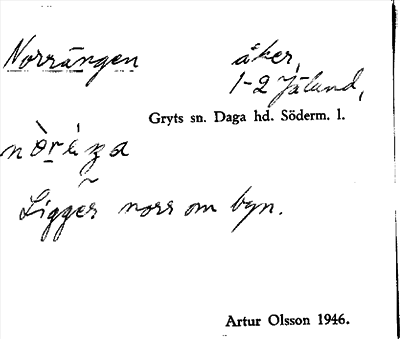 Norrängen åker,
1-2 Jälund,
Gryts sn. Daga hd. Söderm. l.
Ligger norr om byn.
Artur Olsson 1946.